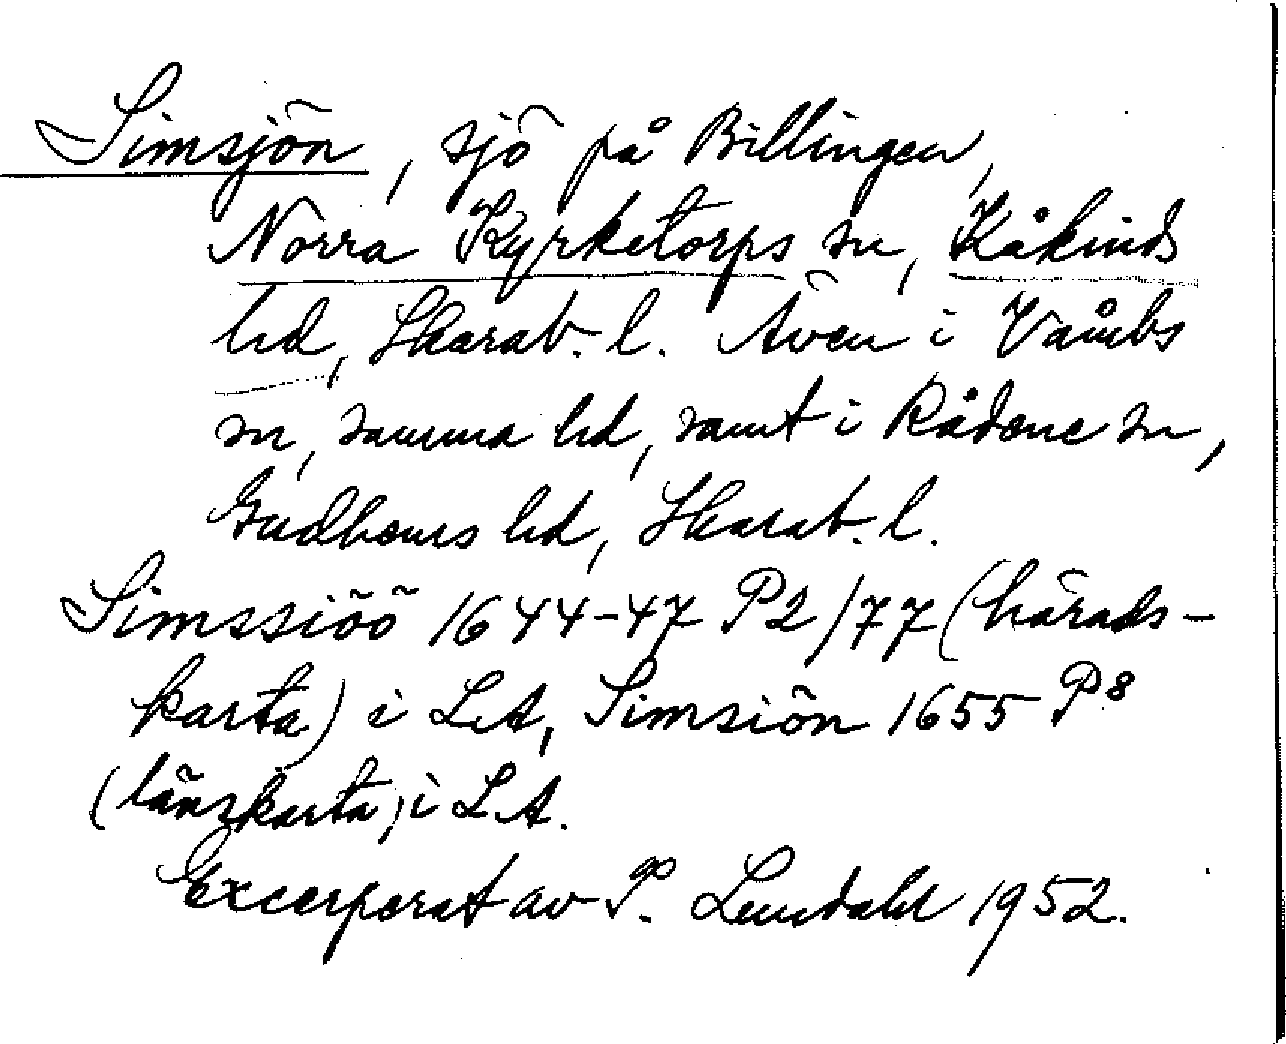 Simsjön, sjö på Billingen,
Norra Kyrketorps sn, Kåkinds
hd, Skarab. l. Även i Våmbs
sn, samma hd, samt i Rådene sn,
Gudhems hd, Skarab. l.
Simssiöö 1644-47 P2/77 (härads-
karta) i LA, Simsiön 1655 P8
(länskarta) i LA.
Excerperat av P. Lundahl 1952.